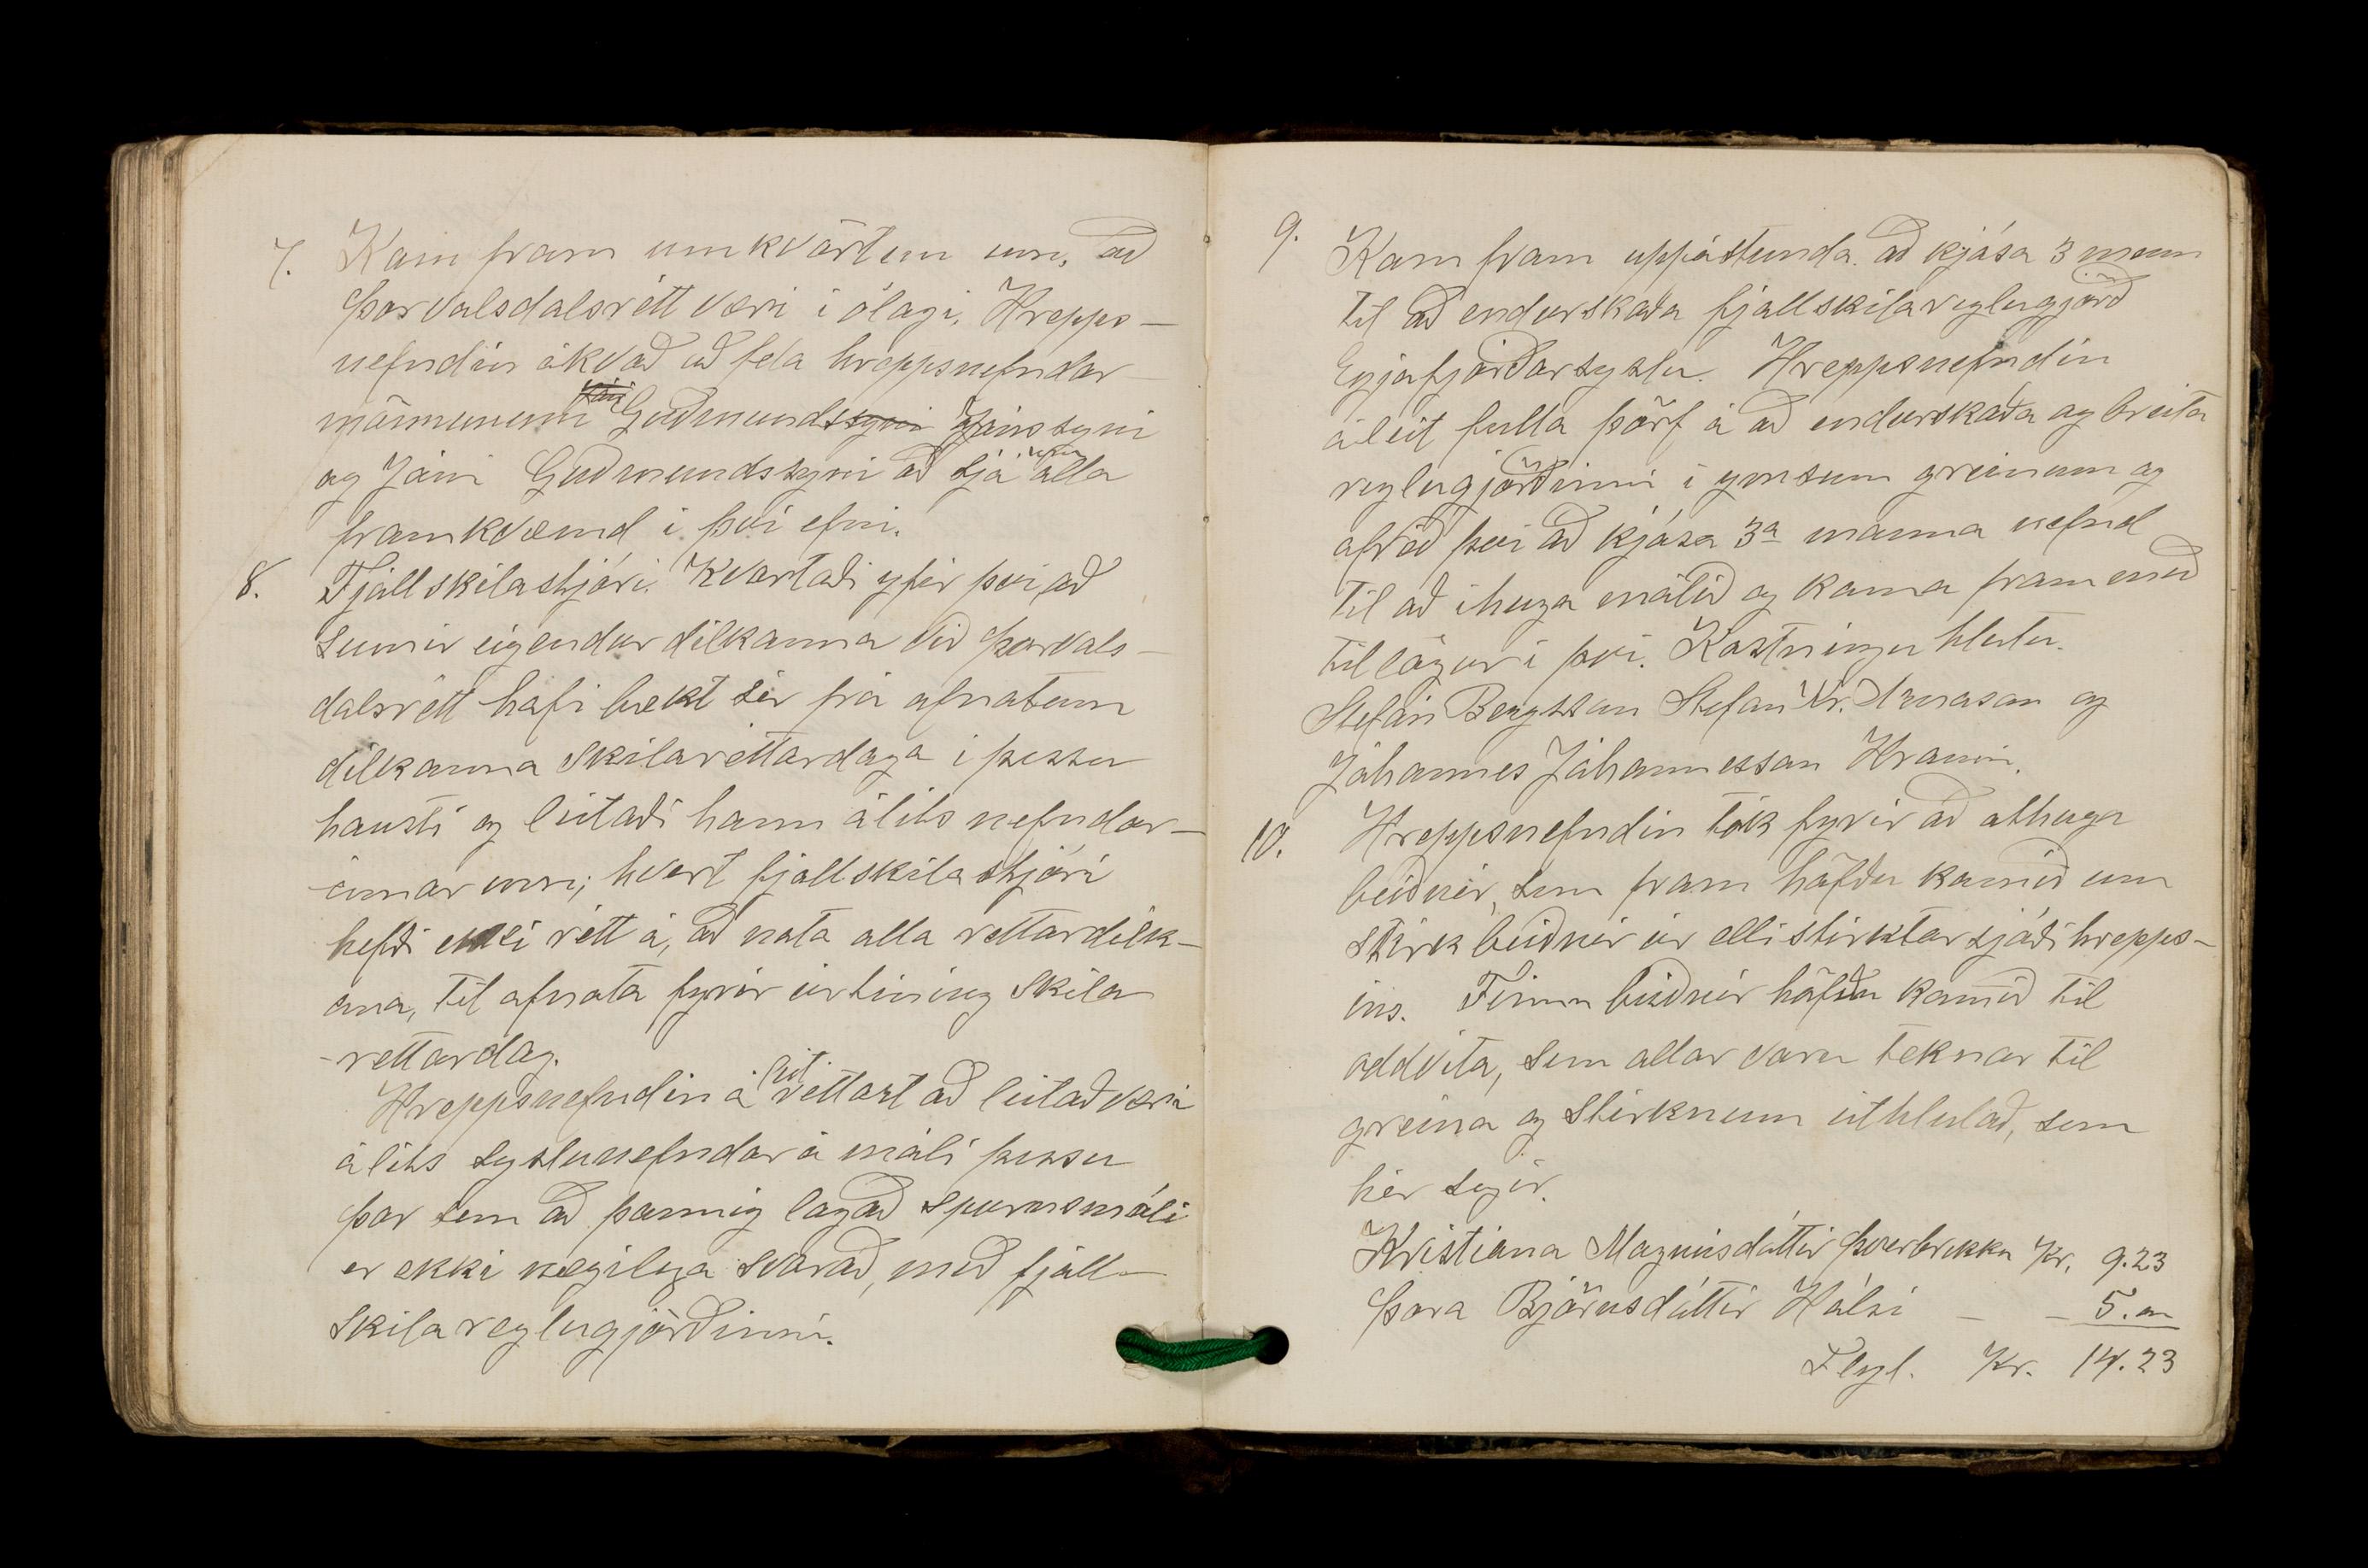 7. Kam fram umkvörtun um, að
Þorvalsdalsrétt væri í ólagi, Hrepps-
nefndin ákvað að fela hreppsnefndar
mönnunum Guðmundsyni Jónssyni
og Jóni Guðmundssyni að sjá um alla
framkvæmd í því efni.
8. Fjallskilastjóri. Kvartaði yfir því, að
sumir eigendur dilkanna við Þorvals-
dalsrétt hafi bekt sér frá afnotum
dilkanna skilaréttardaga í þessu
hausti og leitaði hann álits nefndar-
innar um; hvort fjallskilastjóri
hefði ekki rétt á, að nota alla rettardilk-
ana, til afnota fyrir úrtíning skila
-rettardag.
Hreppsnefndin áleit réttast að leitað væri
álits syslunefndar á máli þessu
þar sem að þannig lagað spursmáli
er ekki nægilega svarað, með fjall-
skilareglugjörðinni.
9. Kam fram uppástunda. að kjósa 3 menn
til að endurskoða fjallskilareglugjörð
Eyjafjarðarsyslu. Hreppsnefndin
áleit fulla þörf á að endurskoða og breita
reglugjörðinni í ymsum greinum og
afréð því að kjósa 3a manna nefnd
til að íhuga málið og koma fram með
tillögur í því. Kostningu hlutu.
Stefán Bergsson Stefan Kr. Arnason og
Jóhannes Jóhannesson Hrauni.
10. Hreppsnefndin tók fyrir að athuga
beiðnir, sem fram höfðu komið um
stirkbeiðnir úr ellistirktarsjóði hrepps-
ins. Fimm beiðnir höfðu komið til
oddvita, sem allar voru teknar til
greina og stirknum úthlutað, sem
hér segir.
Kristiana Magnúsdóttir Þverbrekku Kr. 9.23
Þora Björnsdóttir Hálsi - - 5.00
Flyt. Kr. 14.23